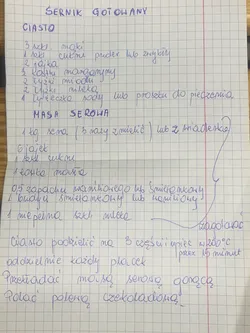 SERNIK GOTOWANY
CIASTO
3 szkl mąki
1 szkl cukru puder lub zwykły
2 jajka
1 kostka margaryny
2 łyżki miodu
2 łyżki mleka
1 łyżeczka sody lub proszku do pieczenia
MASA SEROWA
1 kg sera (3 razy zmielić) lub z wiaderka
6 jajek
1 szkl cukru
1 kostka masła
0,5 zapachu waniliowego lub śmietankowy
1 budyń śmietankowy lub waniliowy
1 niepełna szkl mleka
zagotować
Ciasto podzielić na 3 części i upiec w 200°C
przez 15 minut
oddzielnie każdy placek
Przekładać masą serową gorącą
Polać polewą czekoladową